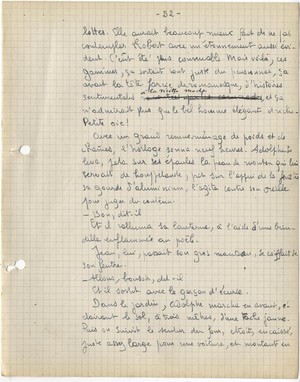 - 52 -
lottes. Elle aurait beaucoup mieux fait de ne pas
contempler Robert avec un étonnement aussi évi-
dent. C'eut été plus convenable. Mais voilà, ces
gamines, ça sortait tout juste du pensionnat, ça
avait la tête farcie de romanesque, d'histoires
sentimentales à la mode et ça
n'admirait plus que le bel homme élégant et riche.
Petite oie!
Avec un grand remue-ménage de poids et de
chaînes, l'horloge sonna neuf heures. Adolphe
leva, jeta sur ses épaules la peau de mouton qui lui
servait de houppelande, prit sur l'appui de la fenêtre
sa gourde d'aluminium, l'agita contre son oreille
pour juger du contenu.
- Bon, dit-il
Et il ralluma sa lanterne, à l'aide d'une brin-
dille enflammée au poêle.
Jean, lui, passait son gros manteau, se coiffait de
son feutre.
- Allons, bonsoir, dit-il
Et il sortit avec le garçon d'écurie.
Dans le jardin, Adolphe marcha en avant, é-
clairant le sol, à trois mètres, d'une tache jaune.
Puis on suivit le sentier du four, étroit, encaissé,
juste assez large pour une voiture, et montant en